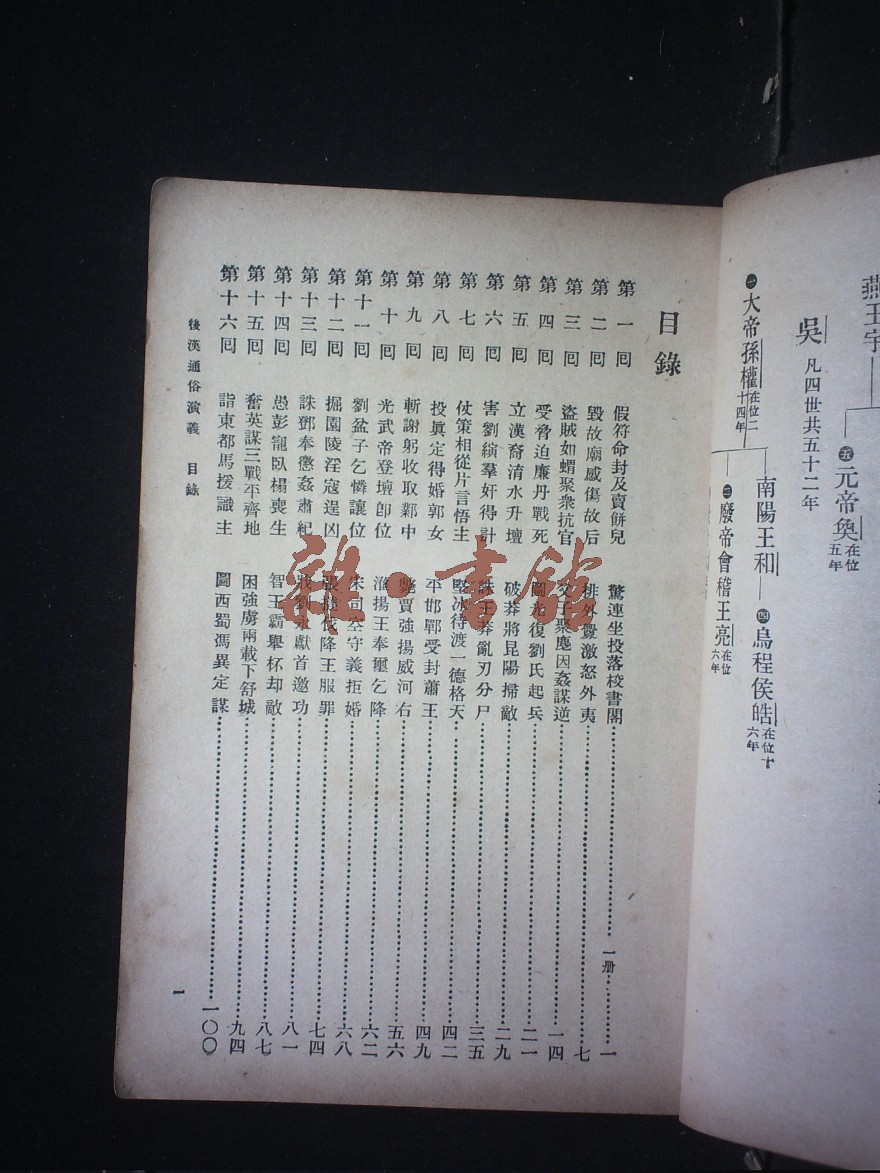 燕王宇
吳 凡四世共五十二年
㊀大帝孫權在位二十四年
㊄元帝奐在位五年
南陽王和
㊃烏程侯皓在位十六年
㊁廢帝會稽王亮在位六年
目錄
第一囘 假符命封及賣餅兒 驚連坐投落校書閣 一册 一
第二囘 毀故廟感傷故后 排外釁激怒外夷 七
第三囘 盜賊如蝟聚衆抗官 父子聚麀因姦謀逆 一四
第四囘 受脅迫廉丹戰死 圖光復劉氏起兵 二一
第五囘 立漢裔淯水升壇 破莽將昆陽掃敵 二九
第六囘 害劉縯羣奸得計 誅王莽亂刃分尸 三五
第七囘 仗策相從片言悟主 堅冰待渡一德格天 四二
第八囘 投眞定得婚郭女 平邯鄲受封蕭王 四九
第九囘 斬謝躬收取鄴中 斃賈強揚威河右 五六
第十囘 光武帝登壇卽位 淮揚王奉璽乞降 六二
第十一囘 劉盆子乞憐讓位 宋司空守義拒婚 六八
第十二囘 掘園陵淫寇逞凶 張撻伐降王服罪 七四
第十三囘 誅鄧奉懲姦肅紀 戕劉永獻首邀功 八一
第十四囘 愚彭寵臥榻喪生 智王霸舉杯却敵 八七
第十五囘 奮英謀三戰平齊地 困強虜兩載下舒城 九四
第十六囘 詣東都馬援識主 圖西蜀馮異定謀 一〇〇
後漢通俗演義 目錄
一
雜·書館